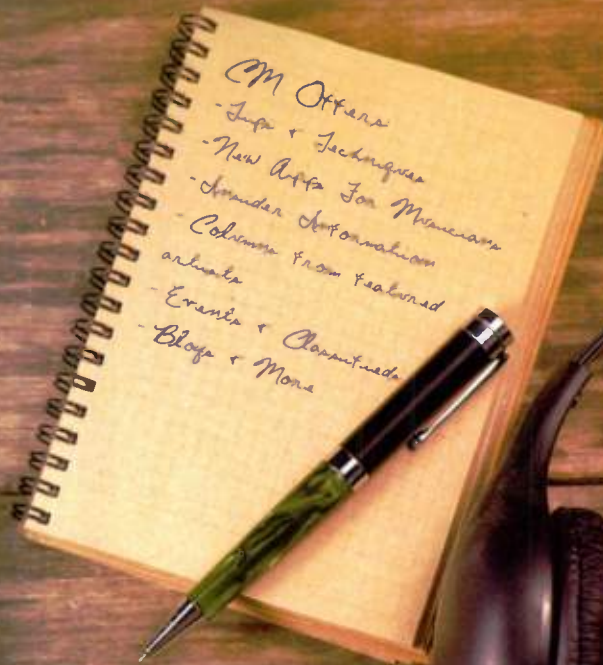 CM Offers
- Tips & Techniques
- New Apps For Musicians
- Insider Information
- Columns From Featured
artists
- Events & Classifieds
- Blogs & More